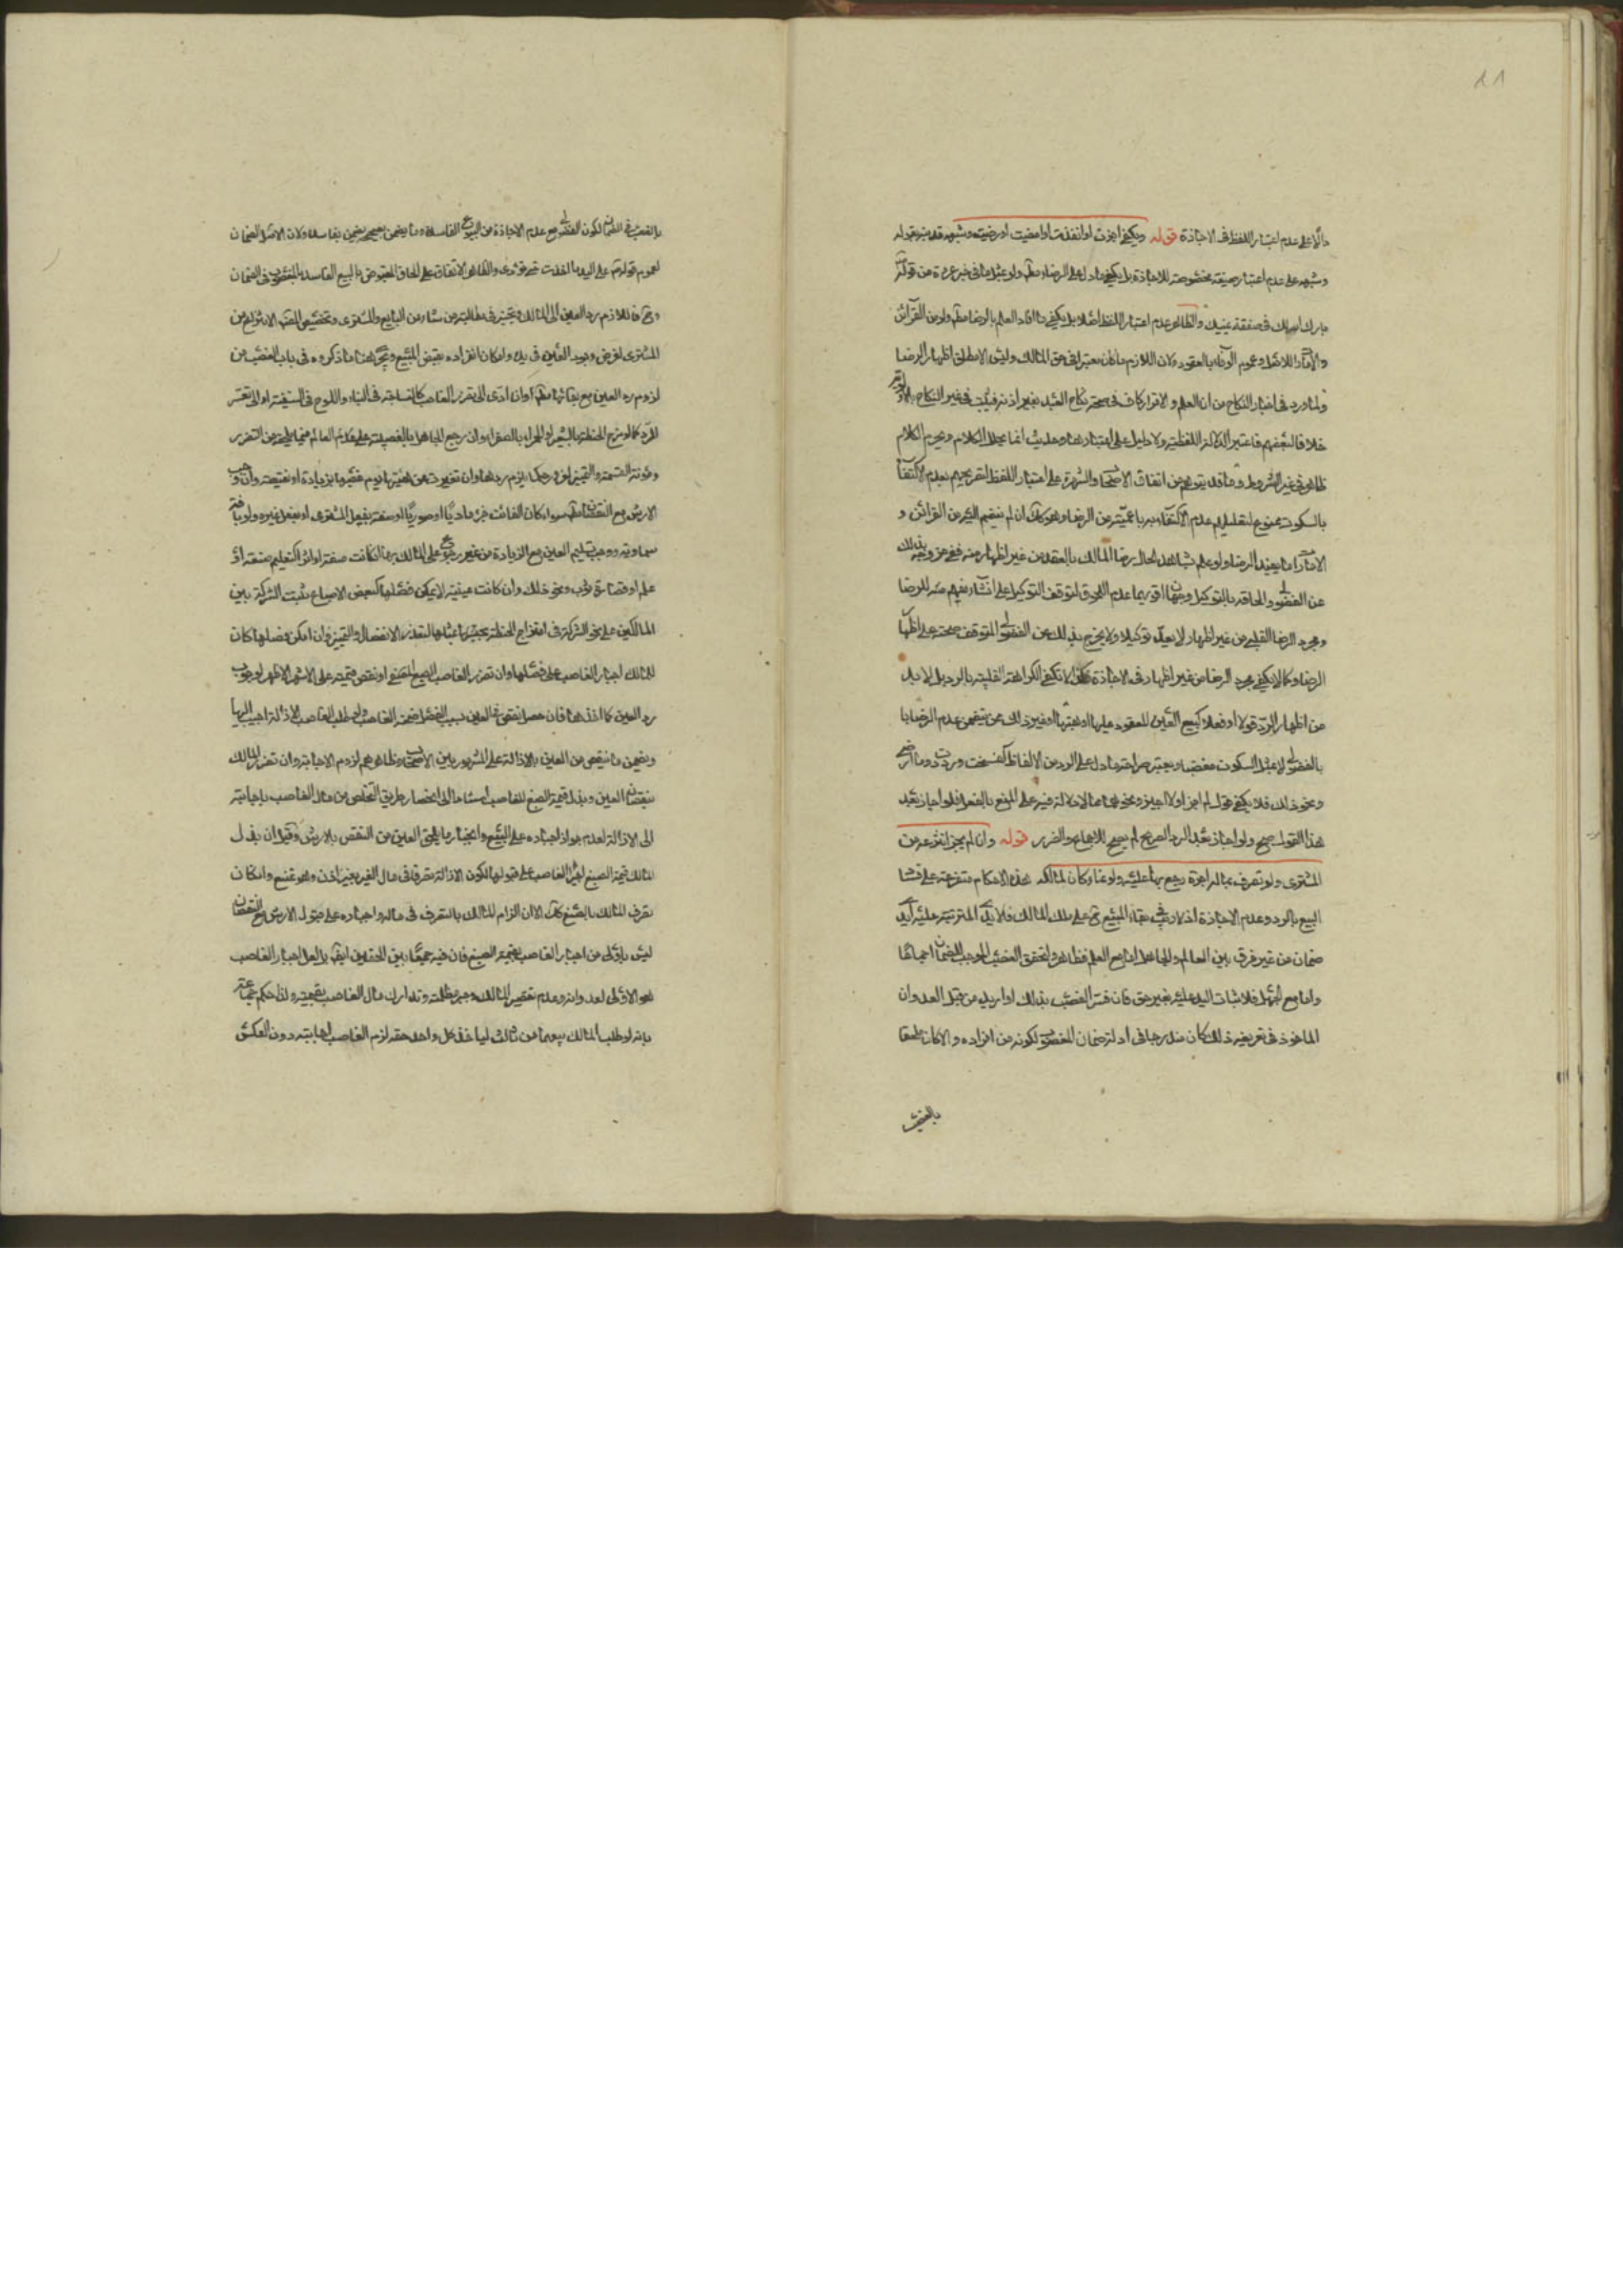 دالا على عدم اعتبار اللفظ فى الاجازة قوله ويكفى اجزت او انفذت او امضيت او رضيت وشبهه قد ينبه بقوله
وشبهه على عدم اعتبار صيغة مخصوصة للاجازة بل يكفى ما دل على الرضا ولو بمثل ما فى خبر عروة من قوله
بارك الله لك فى صفقة يمينك والظاهر عدم اعتبار اللفظ اصلا بل يكفى ما افاد العلم بالرضا ولو من القرائن
وعموم الوفاء بالعقود ولان اللازم ما كان معتبرا فى حق المالك وليس الا مطلق اظهار الرضا
ولما ورد فى اخبار النكاح من ان العلم والاقرار كاف فى صحة نكاح العبد بغير اذنه فيثبت فى غير النكاح
خلافا لبعضهم فاعتبر الدلالة اللفظية ولا دليل على اعتبارها وحديث انما يحلل الكلام ويحرم الكلام
ظاهر فى غير الشروط وما قد يتوهم من اتفاق الاصحاب والشهرة على اعتبار اللفظ لتصريحهم بعدم الاكتفاء
بالسكوت ممنوع لتعليلهم عدم الاكتفاء به باعميته من الرضا وهو كذلك ان لم ينضم اليه من القرائن و
الامارات ما يفيد الرضا ولو علم بشاهد الحال رضا المالك بالعقد من غير اظهار منه ففى خروجه بذلك
عن الفضولى والحاقه بالتوكيل وجهان اقويهما عدم اللحوق لتوقف التوكيل على انشاء يفهم منه الرضا
ومجرد الرضا القلبى من غير اظهار لا يعد توكيلا ولا يخرج بذلك عن الفضولى المتوقف صحته على اظهار
الرضا وكما لا يكفى مجرد الرضا من غير اظهار فى الاجازة فكذا لا تكفى الكراهة القلبية بالرد بل لا بد
من اظهار الرد قولا او فعلا كبيع العين المعقود عليها او هبتها او غير ذلك مما يتضمن عدم الرضا
بالفضولى لا بمثل السكوت مغضبا ويعتبر صراحة ما دل على الرد من الالفاظ كفسخت ورددت وما ارضى
ونحو ذلك فلا يكفى قوله لم اجز اولا اجيز ونحوهما مما لا دلالة فيه على المنع بالفعل فلو اجاز بعد
هذا القول صح ولو اجاز بعد الرد الصريح لم يصح للاجماع والضرر قوله وان لم يجز انتزعه من
المشترى ولو تصرف بماله اجرة رجع بها عليه ولو نما وكان لمالكه هذه الاحكام متفرعة على فساد
البيع بالرد وعدم الاجازة اذ لا ريب فى بقاء المبيع على ملك المالك فلا يد المترتبة عليه يد
ضمان من غير فرق بين العالم والجاهل اما مع العلم فظاهر لتحقق الغصب الموجب للضمان اجماعا
واما مع الجهل فلاثبات اليد عليه بغير حق فان فسر الغصب بذلك او اريد من قيد العدوان
الماخوذ فى تعريفه ذلك كان مندرجا فى ادلة ضمان المغصوب لكونه من افراده والا كان ملحقا
بالغصب
بالغصب فى الضمان لكون الفضولى مع عدم الاجازة من البيوع الفاسدة وما يضمن بصحيحه يضمن بفاسده ولان الاصل الضمان
لعموم قولهم على اليد ما اخذت حتى تؤدى والظاهر الاتفاق على الحاق المقبوض بالبيع الفاسد بالمغصوب فى الضمان
فاللازم رد العين الى المالك ويتخير فى مطالبة من شاء من البايع والمشترى
المشترى لفرض وجود العين فى يده وامكان افراده بقبض المبيع ويجرى هنا ما ذكروه فى باب الغصب من
لزوم رد العين مع بقائها وان ادى الى تضرر الغاصب كالساجة فى البناء واللوح فى السفينة او الى تعسر
الرد كما لو مزج الحنطة بالشعير او الحمراء بالصفراء وان رجع الجاهل بالفضولية على العالم فيما يلحقه من الضرر
ومؤنة القسمة والتمييز يلزم ردها وان تغيرت عن هيئتها يوم غصبها بزيادة او نقيصة
الارش مع النقصان سواء كان الفائت جزء ماديا او صوريا او صفة بفعل المشترى او بفعل غيره ولو بافة
سماوية ووجب تسليم العين مع الزيادة من غير رجوع على المالك بها ان كانت صفة او اثرا كتعليم صنعة او
علم او قصارة ثوب ونحو ذلك وان كانت عينية لا يمكن فصلها كبعض الاصباغ ثبت الشركة بين
المالكين على نحو الشركة فى امتزاج الحنطة بمثلها لتعذر الانفصال والتمييز وان امكن فصلها كان
للمالك اجبار الغاصب على فصلها وان تضرر الغاصب الصبغ او نقص قيمته على الاشهر الاظهر لوجوب
رد العين كما اخذها فان حصل نقص فى العين بسبب الفصل ضمنه الغاصب ولو طلب الغاصب الازالة اجيب اليها
ويضمن ما ينقص من العين بالازالة على المشهور بين الاصحاب وظاهرهم لزوم الاجابة وان تضرر المالك
بنقصان العين وبذل قيمة الصبغ للغاصب استنادا الى انحصار طريق التخلص من مال الغاصب باجابته
الى الازالة لعدم جواز اجباره على البيع وانجبار ما يلحق العين من النقص بالارش وقيل ان بذل
المالك قيمة الصبغ اجبر الغاصب على قبولها لكون الازالة تصرفا فى مال الغير بغير اذن وهو ممتنع وان كان
تصرف المالك بالصبغ كذلك الا ان الزام المالك بالتصرف فى ماله واجباره على قبول الارش مع النقصان
ليس باولى من اجبار الغاصب بقيمة الصبغ فان فيه جمعا بين الحقين ايضا بل لعل اجبار الغاصب
هو الاولى لعدوانه وعدم تقصير المالك وجبر مظلمته وتدارك مال الغاصب بقيمته ولذا حكم جماعة
بانه لو طلب المالك بيعهما من ثالث لياخذ كل واحد حقه لزم الغاصب اجابته دون العكس